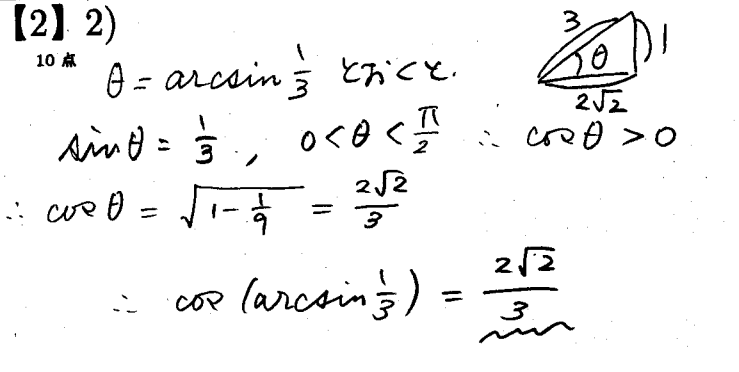 【2】 2)
10点
θ = arcsin 1/3 とおくと.
sinθ = 1/3 , 0<θ<π/2 ∴ cosθ > 0
∴ cosθ = √(1-1/9) = 2√2/3
∴ cos (arcsin 1/3) = 2√2/3
3
θ
1
2√2